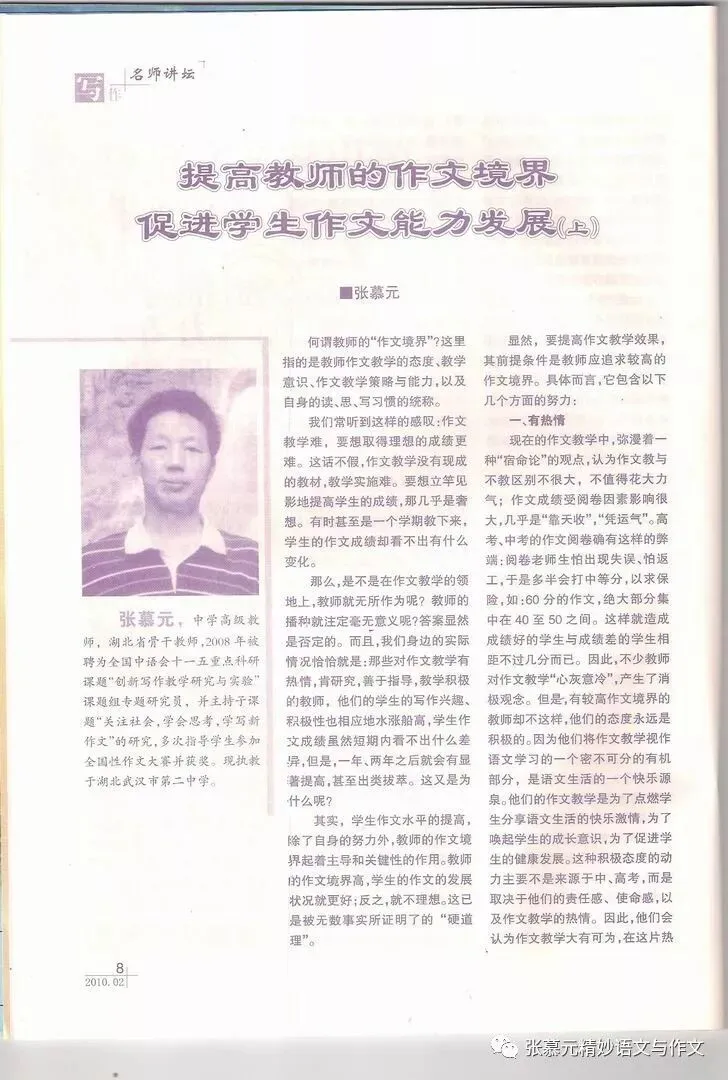 写作
名师讲坛
提高教师的作文境界
促进学生作文能力发展(上)
■张慕元
张慕元，中学高级教
师，湖北省骨干教师,2008年被
聘为全国中语会十一五重点科研
课题“创新写作教学研究与实验”
课题组专题研究员，并主持子课
题“关注社会,学会思考,学写新
作文”的研究,多次指导学生参加
全国性作文大赛并获奖。现执教
于湖北武汉市第二中学。
何谓教师的“作文境界”?这里
指的是教师作文教学的态度、教学
意识、作文教学策略与能力,以及
自身的读、思、写习惯的统称。
我们常听到这样的感叹:作文
教学难，要想取得理想的成绩更
难。这话不假,作文教学没有现成
的教材,教学实施难。要想立竿见
影地提高学生的成绩,那几乎是奢
想。有时甚至是一个学期教下来，
学生的作文成绩却看不出有什么
变化。
那么,是不是在作文教学的领
地上,教师就无所作为呢？教师的
播种就注定毫无意义呢?答案显然
是否定的。而且,我们身边的实际
情况恰恰就是:那些对作文教学有
热情,肯研究,善于指导,教学积极
的教师，他们的学生的写作兴趣、
积极性也相应地水涨船高,学生作
文成绩虽然短期内看不出什么差
异,但是,一年、两年之后就会有显
著提高,甚至出类拔萃。这又是为
什么呢?
其实，学生作文水平的提高，
除了自身的努力外,教师的作文境
界起着主导和关键性的作用。教师
的作文境界高,学生的作文的发展
状况就更好;反之,就不理想。这已
是被无数事实所证明了的“硬道
理”。
显然，要提高作文教学效果，
其前提条件是教师应追求较高的
作文境界。具体而言,它包含以下
几个方面的努力:
一、有热情
现在的作文教学中,弥漫着一
种“宿命论”的观点,认为作文教与
不教区别不很大，不值得花大力
气；作文成绩受阅卷因素影响很
大,几乎是“靠天收”,“凭运气”。高
考、中考的作文阅卷确有这样的弊
端:阅卷老师生怕出现失误、怕返
工,于是多半会打中等分,以求保
险,如:60分的作文,绝大部分集
中在40至50之间。这样就造成
成绩好的学生与成绩差的学生相
距不过几分而已。因此,不少教师
对作文教学“心灰意冷”,产生了消
极观念。但是,有较高作文境界的
教师却不这样,他们的态度永远是
积极的。因为他们将作文教学视作
语文学习的一个密不可分的有机
部分，是语文生活的一个快乐源
泉。他们的作文教学是为了点燃学
生分享语文生活的快乐激情,为了
唤起学生的成长意识,为了促进学
生的健康发展。这种积极态度的动
力主要不是来源于中、高考,而是
取决于他们的责任感、使命感,以
及作文教学的热情。因此,他们会
认为作文教学大有可为,在这片热
8
2010.02
张慕元精妙语文与作文